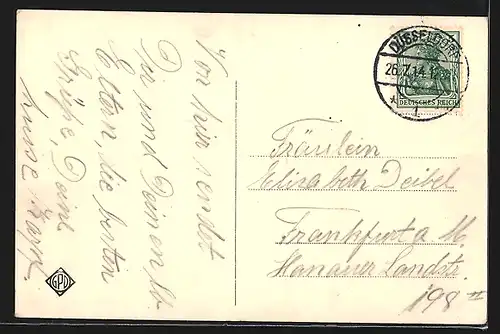 Von hier sendet
Dir und Deinen lb.
Eltern, die besten
Grüße, Deine
DÜSSELDORF
26.7.14.
*1
DEUTSCHES REICH
Fräulein
Elisabeth Deibel
Frankfurt a M.
Hanauer Landstr.
198 II
GPD